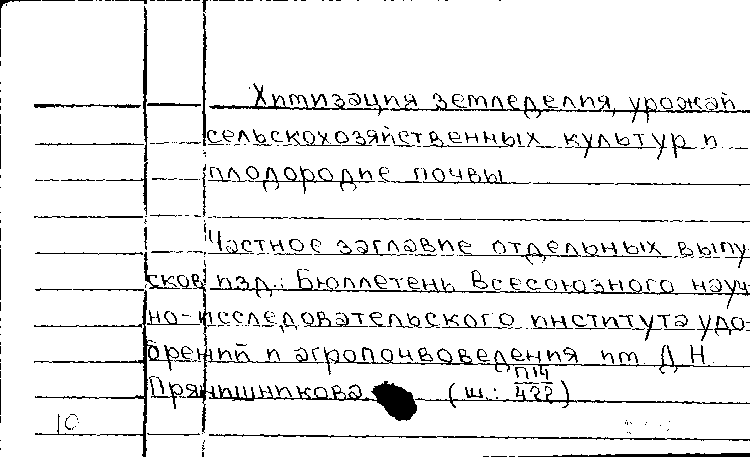 Химизация земледелия, урожай
сельскохозяйственных культур и
плодородие почвы
Частное заглавие отдельных выпу-
сков изд.: Бюллетень Всесоюзного науч-
но-исследовательского института удо-
брений и агропочвоведения им. Д.Н.
Прянишникова (ш.: П14/422)
10